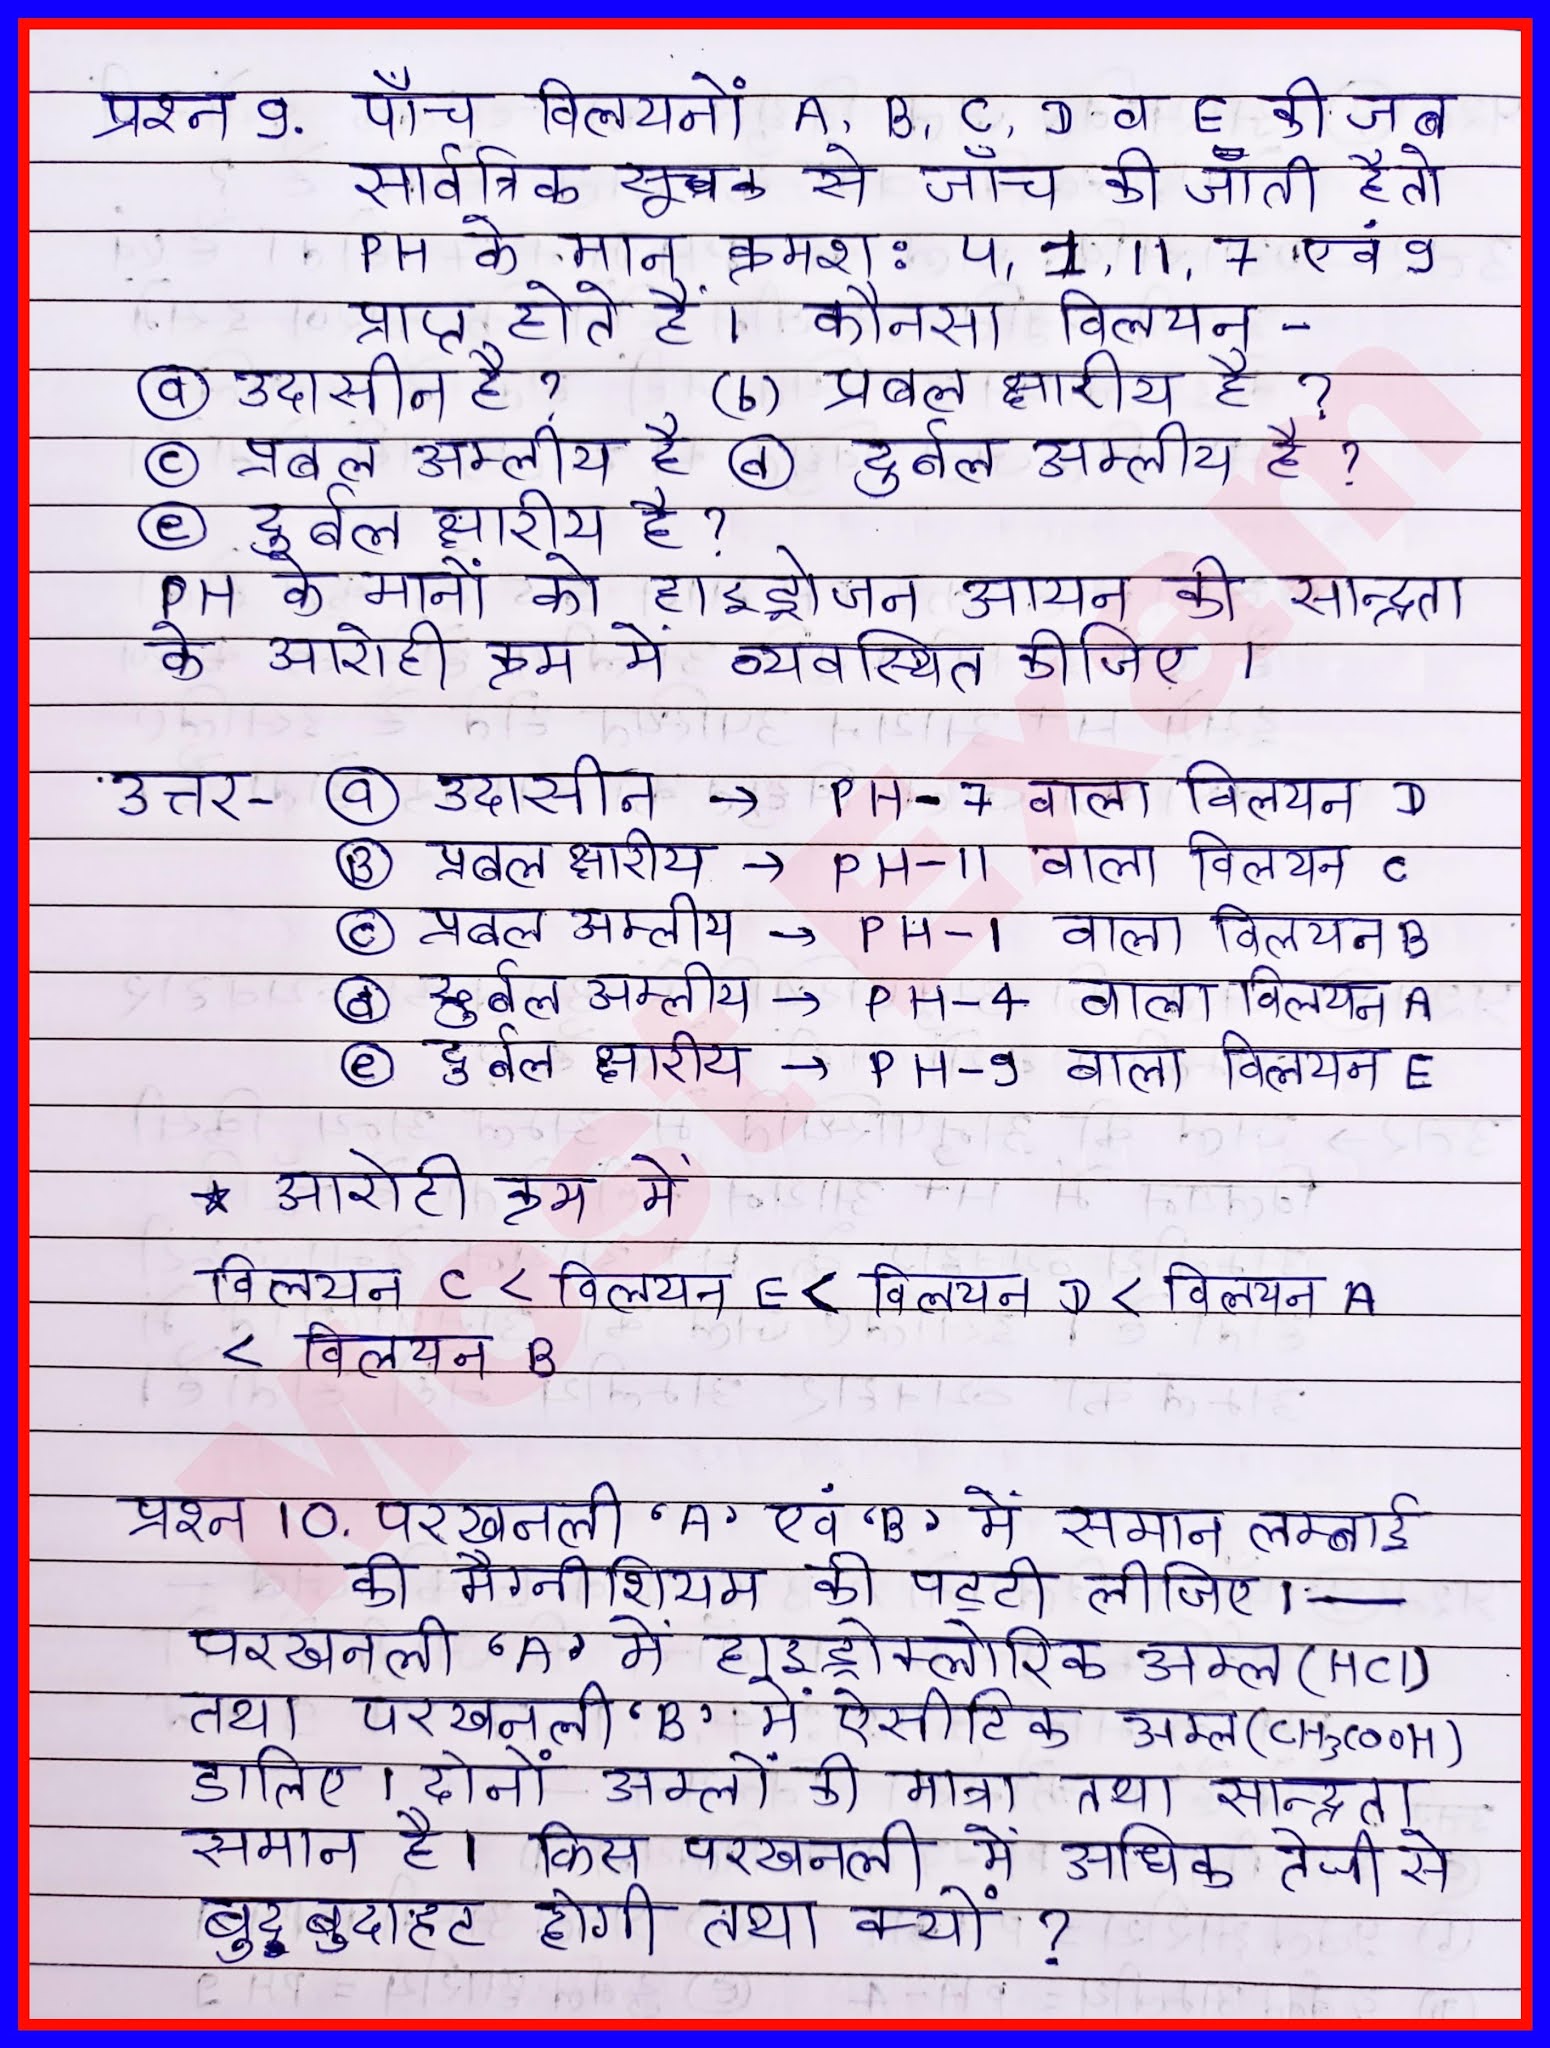 प्रश्न 9. पाँच विलयनों A, B, C, D व E की जब
सार्वत्रिक सूचक से जाँच की जाँती है तो
PH के मान क्रमश: 4, 1, 11, 7 एवं 9
प्राप्त होते हैं। कौनसा विलयन -
(a) उदासीन है ? (b) प्रबल क्षारीय है ?
(c) प्रबल अम्लीय है (d) दुर्बल अम्लीय है ?
(e) दुर्बल क्षारीय है ?
PH के मानों को हाइड्रोजन आयन की सान्द्रता
के आरोही क्रम में व्यवस्थित कीजिए ।
उत्तर- (a) उदासीन → PH-7 वाला विलयन D
(B) प्रबल क्षारीय → PH-11 वाला विलयन C
(c) प्रबल अम्लीय → PH-1 वाला विलयन B
(d) दुर्बल अम्लीय → PH-4 वाला विलयन A
(e) दुर्बल क्षारीय → PH-9 वाला विलयन E
* आरोही क्रम में
विलयन C < विलयन E < विलयन D < विलयन A
< विलयन B
प्रश्न 10. परखनली 'A' एवं 'B' में समान लम्बाई
की मैग्नीशियम की पट्टी लीजिए । —
परखनली 'A' में हाइड्रोक्लोरिक अम्ल (HCl)
तथा परखनली 'B' में ऐसीटिक अम्ल (CH3COOH)
डालिए । दोनों अम्लों की मात्रा तथा सान्द्रता
समान है। किस परखनली में अधिक तेजी से
बुदबुदाहट होगी तथा क्यों ?
Most Exam